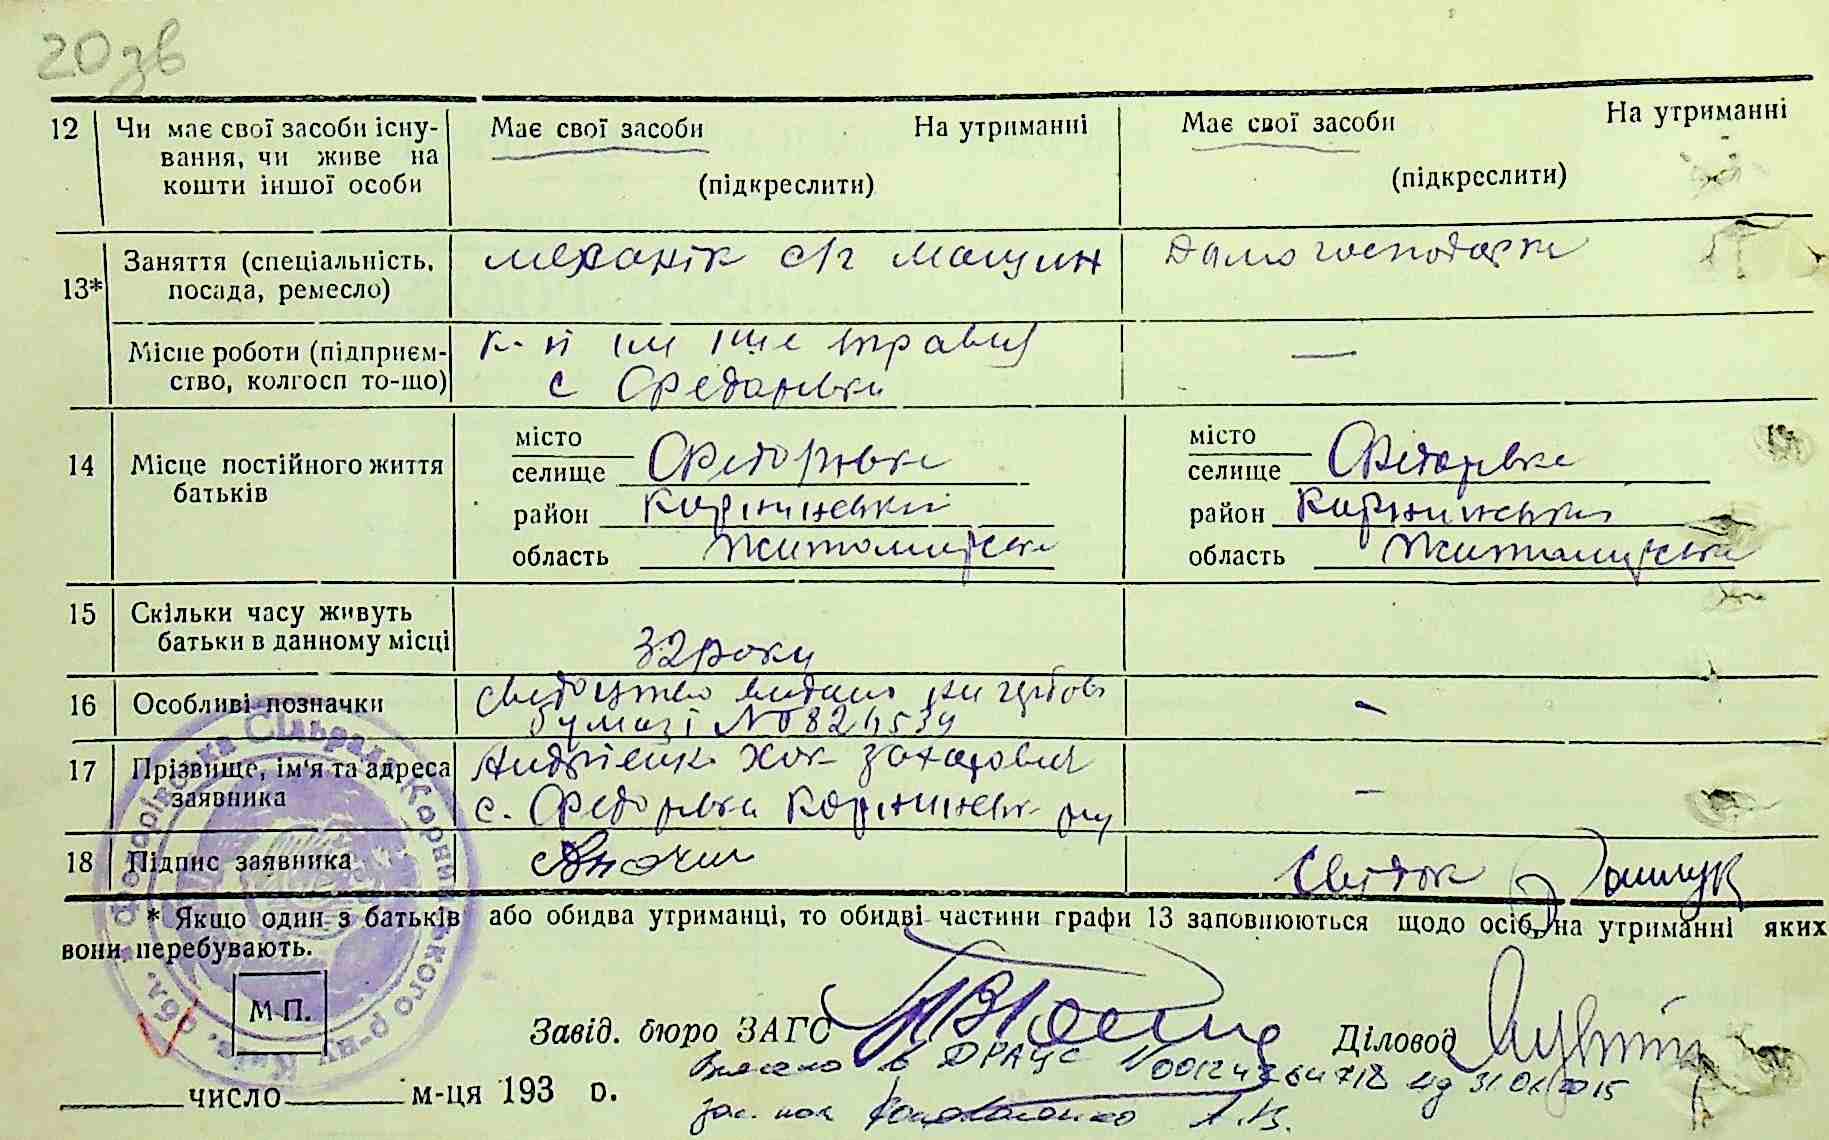 20 зв
12 Чи має свої засоби існу- Має свої засоби На утриманні Має свої засоби На утриманні
вання, чи живе на
кошти іншої особи (підкреслити) (підкреслити)
13* Заняття (спеціальність, механік с/г машин Домогосподарка
посада, ремесло)
Місце роботи (підприєм- к-п ім 1ше травня —
ство, колгосп то-що) с Федорівка
14 Місце постійного життя батьків
місто місто
селище Федорівка селище Федорівка
район Корнинський район Корнинський
область Житомирська область Житомирська
15 Скільки часу живуть
батьки в данному місці 32 роки
16 Особливі позначки свидоцтво видано на гербов -
бумазі №
17 Прізвище, ім'я та адреса Андрієнк Захарович —
заявника с. Федорівка Корнинськ р-ну
18 Підпис заявника Свідок
* Якщо один з батьків або обидва утриманці, то обидві частини графи 13 заповнюються щодо осіб, на утриманні яких
вони перебувають.
М.П.
Завід. бюро ЗАГС Діловод
Внесено в ДРАЦС 00124264718 від 31.01.2015
число м-ця 193 о.
зас. нач Коноваленко
Федорівська Сільрада Корнинського р-ну Київ. обл.